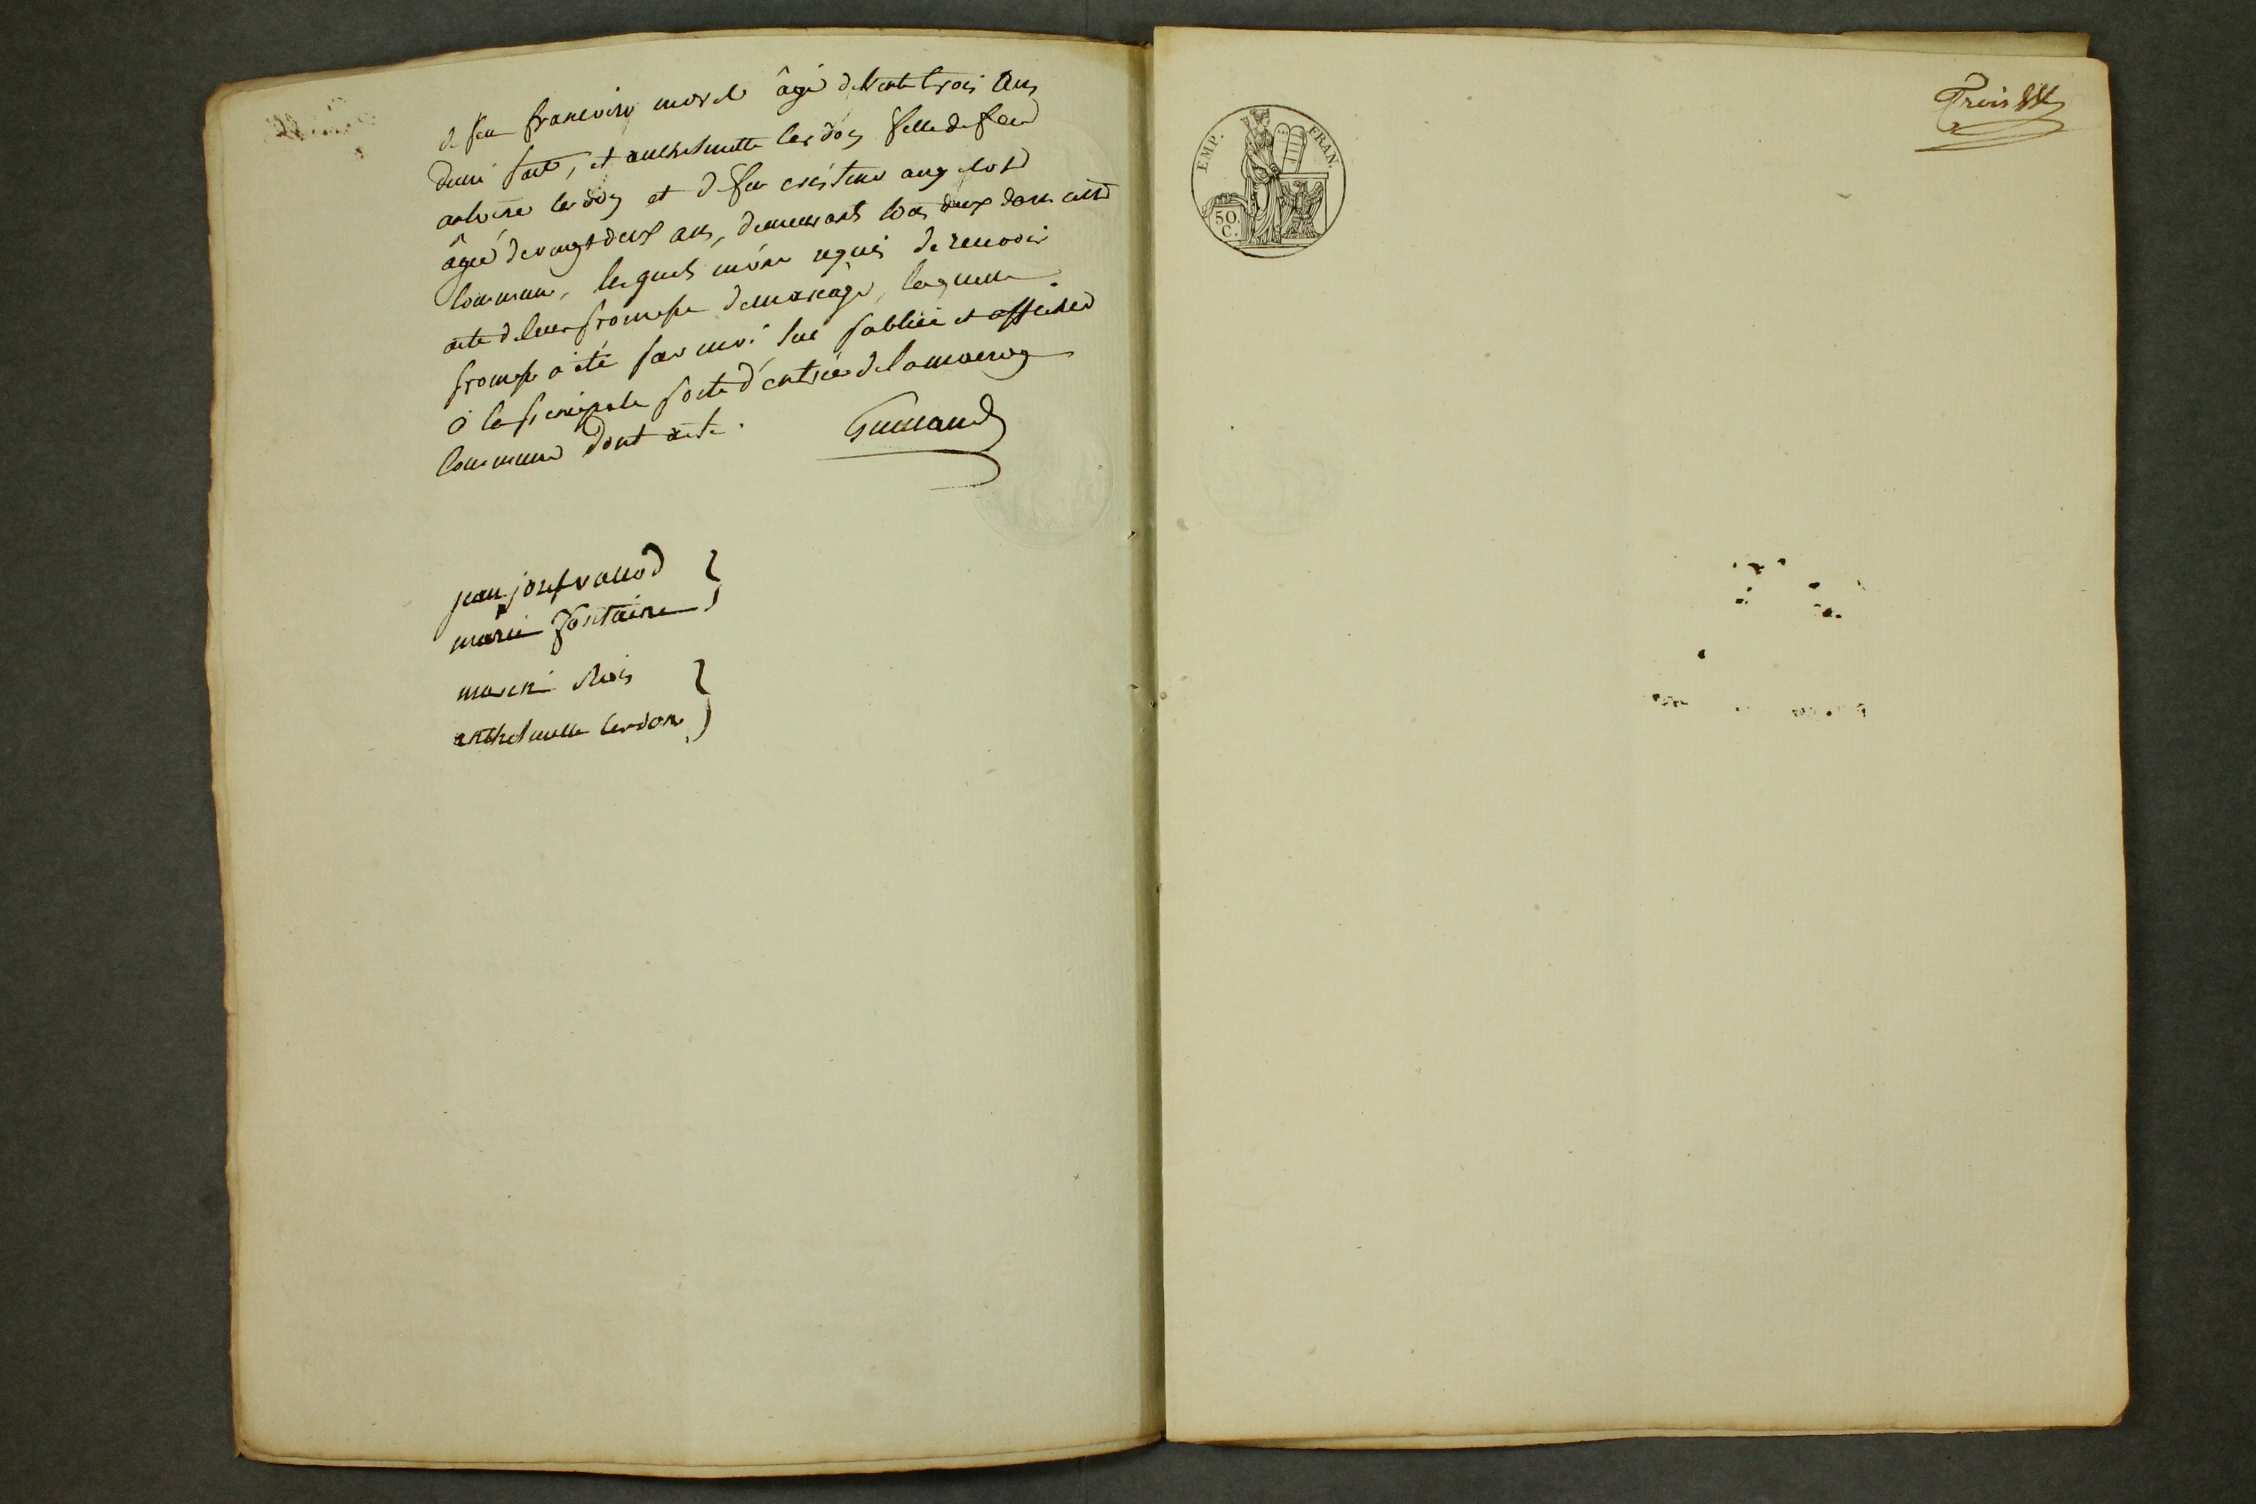 de feu francoise morel âgé de trente trois ans
d'une part, et anthelmette cerdon fille de feu
antoine cerdon et de feu cristine angelot
âgée de vingt deux ans, demeurants tous deux dans cette
commune, lesquels m'ont requis de recevoir
acte de leur promesse de mariage, laquelle
promesse a été par moi lue publiée et affichée
à la principale porte d'entrée de la maison
commune dont acte.
jean josef vallod
marie fontaine
anthelmette cerdon
EMP. FRAN.
50.
C.
Trois